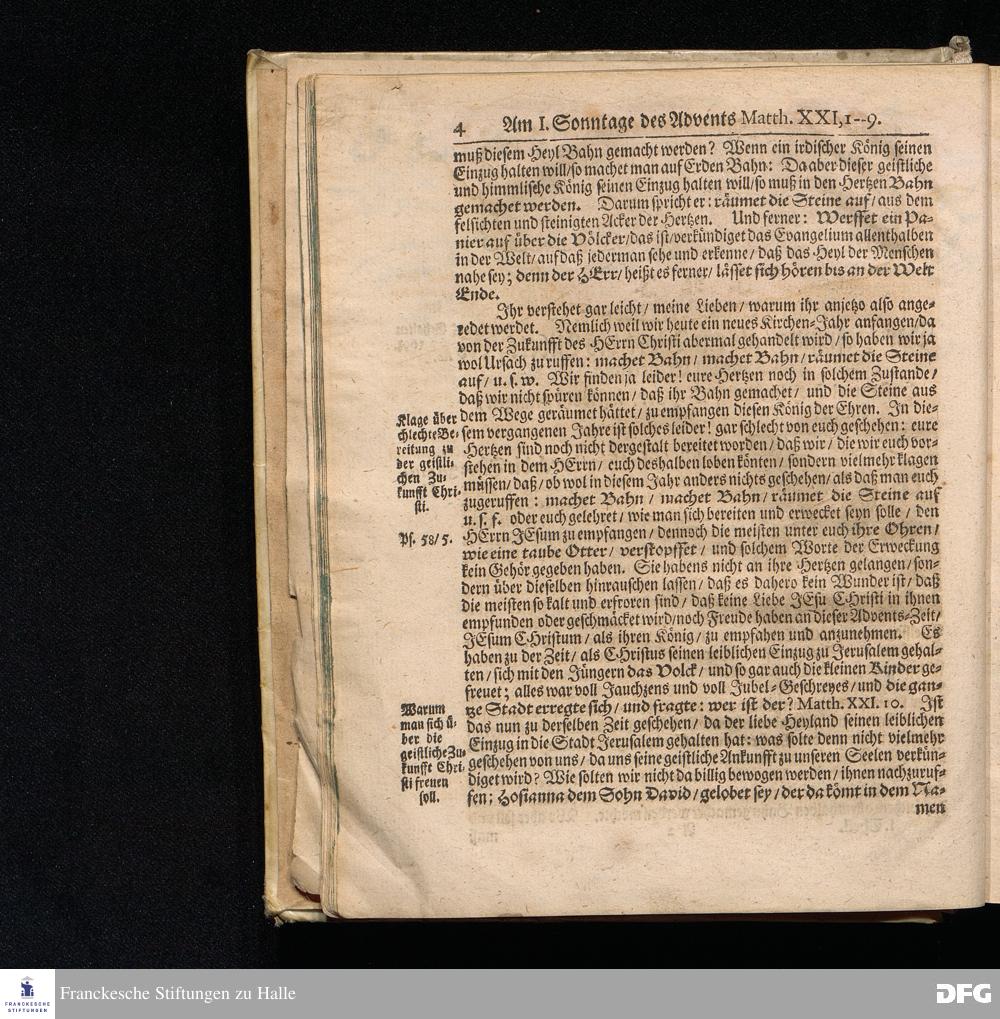 4 Am I. Sonntage des Advents Matth. XXI,1--9.
muß diesem Heyl Bahn gemacht werden? Wenn ein irdischer König seinen
Einzug halten will/so machet man auf Erden Bahn: Da aber dieser geistliche
und himmlische König seinen Einzug halten will/so muß in den Hertzen Bahn
gemachet werden. Darum spricht er: räumet die Steine auf/aus dem
felsichten und steinigten Acker der Hertzen. Und ferner: Werffet ein Pa-
nier auf über die Völcker/das ist/verkündiget das Evangelium allenthalben
in der Welt/auf daß jederman sehe und erkenne/ daß das Heyl der Menschen
nahe sey; denn der HErr/ heißt es ferner/ lässet sich hören bis an der Welt
Ende.
Ihr verstehet gar leicht/ meine Lieben/ warum ihr anjetzo also ange-
redet werdet. Nemlich weil wir heute ein neues Kirchen-Jahr anfangen/da
von der Zukunfft des HErrn Christi abermal gehandelt wird/so haben wir ja
wol Ursach zu ruffen: machet Bahn/ machet Bahn/ räumet die Steine
auf/ u. s. w. Wir finden ja leider! eure Hertzen noch in solchem Zustande/
daß wir nicht spüren können/ daß ihr Bahn gemachet/ und die Steine aus
dem Wege geräumet hättet/ zu empfangen diesen König der Ehren. In die-
sem vergangenen Jahre ist solches leider! gar schlecht von euch geschehen: eure
Hertzen sind noch nicht dergestalt bereitet worden/ daß wir/ die wir euch vor-
stehen in dem HErrn/ euch deshalben loben könten/ sondern vielmehr klagen
müssen/ daß/ ob wol in diesem Jahr anders nichts geschehen/ als daß man euch
zugeruffen: machet Bahn/ machet Bahn/ räumet die Steine auf
u. s. f. oder euch gelehret/ wie man sich bereiten und erwecket seyn solle/ den
HErrn JEsum zu empfangen/ dennoch die meisten unter euch ihre Ohren/
wie eine taube Otter/ verstopffet/ und solchem Worte der Erweckung
kein Gehör gegeben haben. Sie habens nicht an ihre Hertzen gelangen/son-
dern über dieselben hinrauschen lassen/ daß es dahero kein Wunder ist/ daß
die meisten so kalt und erfroren sind/ daß keine Liebe JEsu CHristi in ihnen
empfunden oder geschmäcket wird/noch Freude haben an dieser Advents-Zeit/
JEsum CHristum/ als ihren König/ zu empfahen und anzunehmen. Es
haben zu der Zeit/ als CHristus seinen leiblichen Einzug zu Jerusalem gehal-
ten/ sich mit den Jüngern das Volck/ und so gar auch die kleinen Kinder ge-
freuet; alles war voll Jauchzens und voll Jubel-Geschreyes/und die gan-
tze Stadt erregte sich/ und fragte: wer ist der? Matth. XXI. 10. Ist
das nun zu derselben Zeit geschehen/ da der liebe Heyland seinen leiblichen
Einzug in die Stadt Jerusalem gehalten hat: was solte denn nicht vielmehr
geschehen von uns/ da uns seine geistliche Ankunfft zu unseren Seelen verkün-
diget wird? Wie solten wir nicht da billig bewogen werden/ ihnen nachzuruf-
fen: Hosianna dem Sohn David/ gelobet sey/ der da kömt in dem Na-
men
Klage über
schlechte Be-
reitung zu
der geistli-
chen Zu-
kunfft Chri-
sti.
Ps. 58/5.
Warum
man sich ü-
ber die
geistliche Zu-
kunfft Chri-
sti freuen
soll.
FRANCKESCHE
STIFTUNGEN
Franckesche Stiftungen zu Halle
DFG